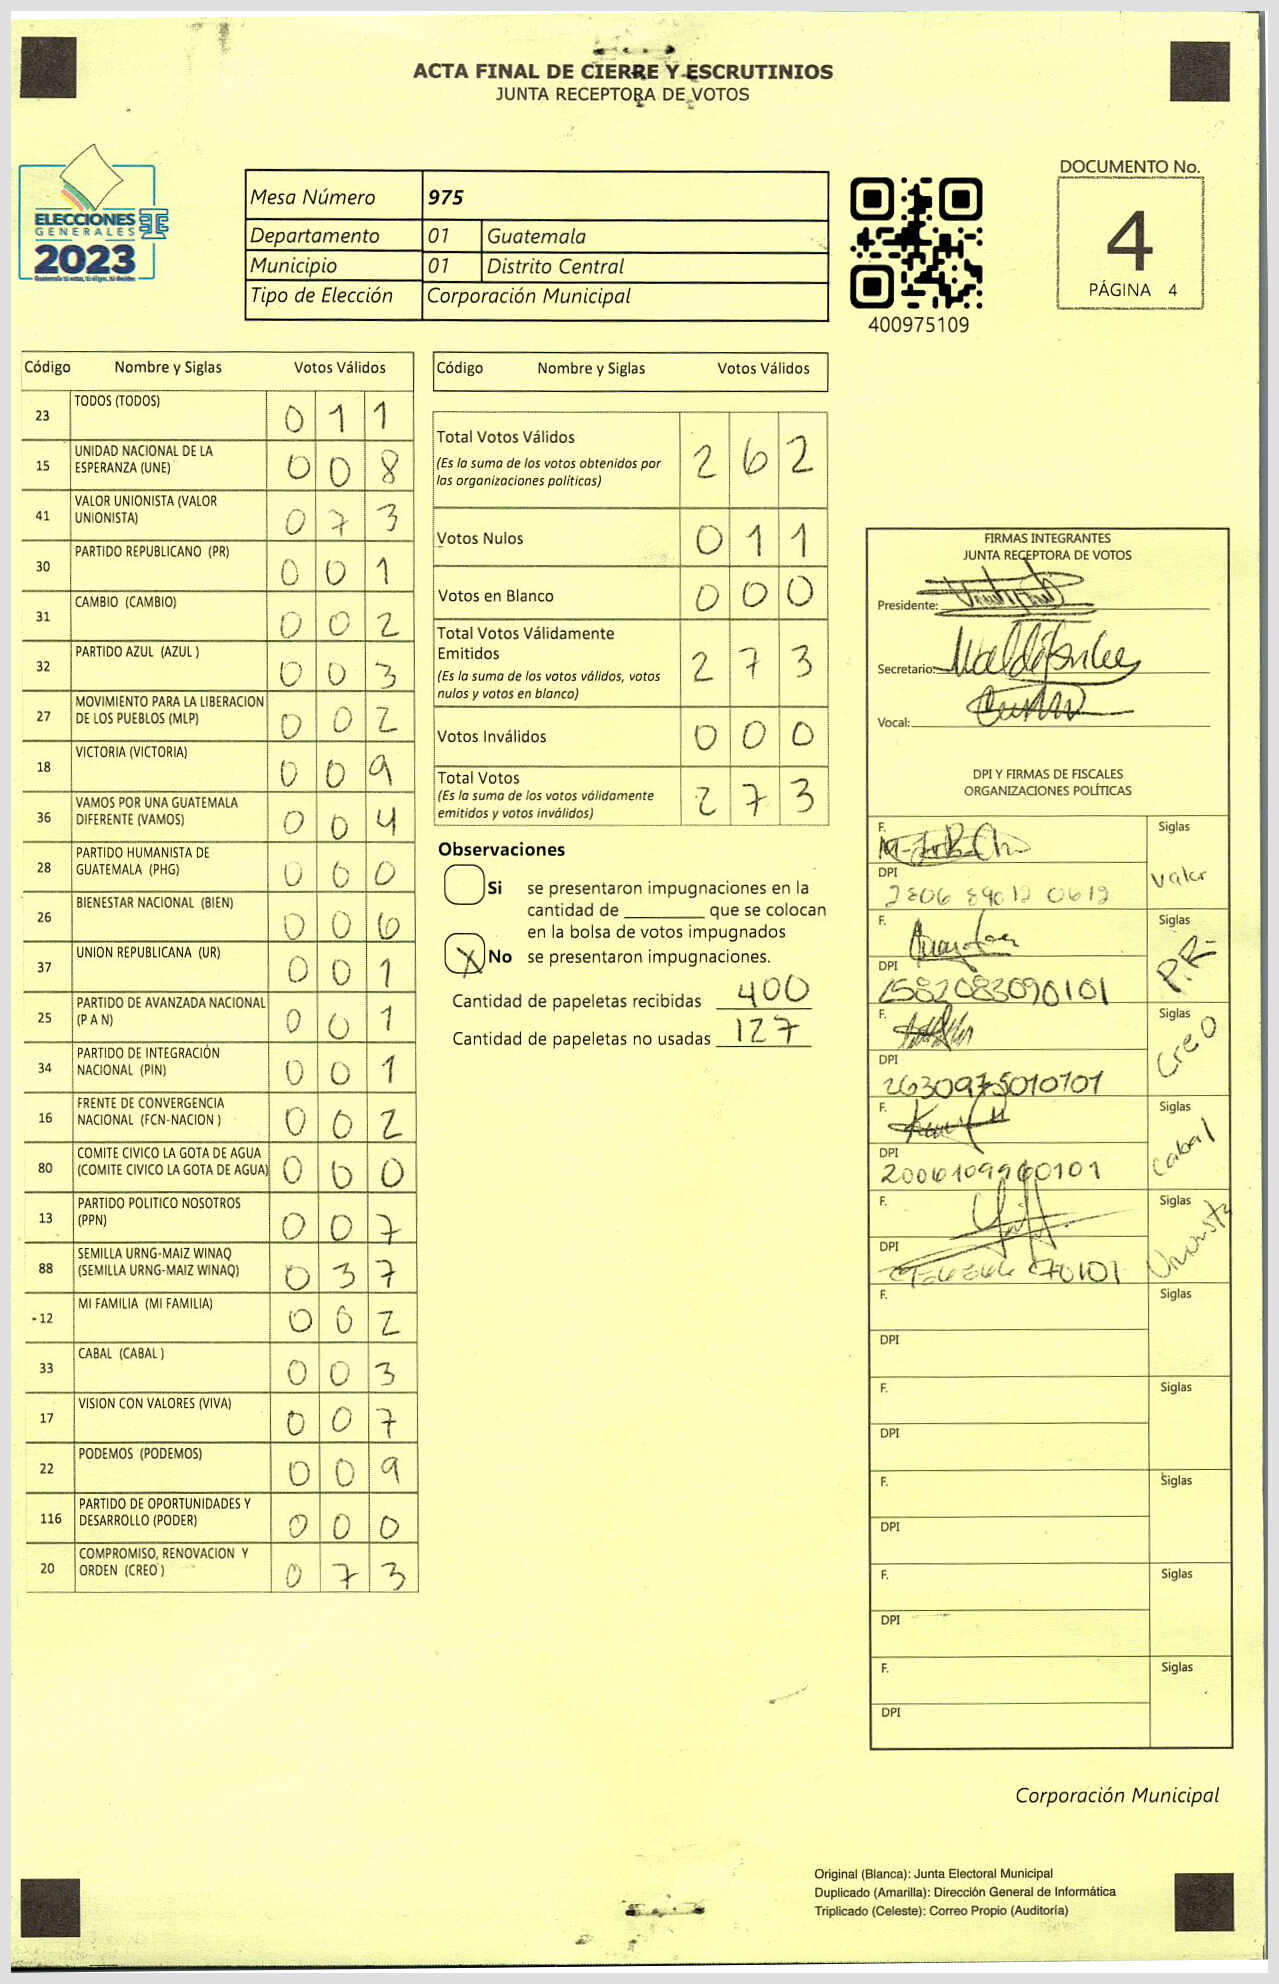 ACTA FINAL DE CIERRE Y ESCRUTINIOS
JUNTA RECEPTORA DE VOTOS
ELECCIONES
GENERALES
2023
Mesa Número 975
Departamento 01 Guatemala
Municipio 01 Distrito Central
Tipo de Elección Corporación Municipal
400975109
DOCUMENTO No.
4
PÁGINA 4
Código Nombre y Siglas Votos Válidos
23 TODOS (TODOS) 0 1 1
15 UNIDAD NACIONAL DE LA
ESPERANZA (UNE) 0 0 8
41 VALOR UNIONISTA (VALOR
UNIONISTA) 0 7 3
30 PARTIDO REPUBLICANO (PR) 0 0 1
31 CAMBIO (CAMBIO) 0 0 2
32 PARTIDO AZUL (AZUL ) 0 0 3
27 MOVIMIENTO PARA LA LIBERACION
DE LOS PUEBLOS (MLP) 0 0 2
18 VICTORIA (VICTORIA) 0 0 9
36 VAMOS POR UNA GUATEMALA
DIFERENTE (VAMOS) 0 0 4
28 PARTIDO HUMANISTA DE
GUATEMALA (PHG) 0 0 0
26 BIENESTAR NACIONAL (BIEN) 0 0 6
37 UNION REPUBLICANA (UR) 0 0 1
25 PARTIDO DE AVANZADA NACIONAL
(P A N) 0 0 1
34 PARTIDO DE INTEGRACIÓN
NACIONAL (PIN) 0 0 1
16 FRENTE DE CONVERGENCIA
NACIONAL (FCN-NACION ) 0 0 2
80 COMITE CIVICO LA GOTA DE AGUA
(COMITE CIVICO LA GOTA DE AGUA) 0 0 0
13 PARTIDO POLITICO NOSOTROS
(PPN) 0 0 7
88 SEMILLA URNG-MAIZ WINAQ
(SEMILLA URNG-MAIZ WINAQ) 0 3 7
-12 MI FAMILIA (MI FAMILIA) 0 0 2
33 CABAL (CABAL ) 0 0 3
17 VISION CON VALORES (VIVA) 0 0 7
22 PODEMOS (PODEMOS) 0 0 9
116 PARTIDO DE OPORTUNIDADES Y
DESARROLLO (PODER) 0 0 0
20 COMPROMISO, RENOVACION Y
ORDEN (CREO ) 0 7 3
Código Nombre y Siglas Votos Válidos
Total Votos Válidos 2 6 2
(Es la suma de los votos obtenidos por
las organizaciones políticas)
Votos Nulos 0 1 1
Votos en Blanco 0 0 0
Total Votos Válidamente
Emitidos 2 7 3
(Es la suma de los votos válidos, votos
nulos y votos en blanco)
Votos Inválidos 0 0 0
Total Votos 2 7 3
(Es la suma de los votos válidamente
emitidos y votos inválidos)
Observaciones
Si se presentaron impugnaciones en la
cantidad de ________ que se colocan
en la bolsa de votos impugnados
X No se presentaron impugnaciones.
Cantidad de papeletas recibidas 400
Cantidad de papeletas no usadas 127
FIRMAS INTEGRANTES
JUNTA RECEPTORA DE VOTOS
Presidente:
Secretario:
Vocal:
DPI Y FIRMAS DE FISCALES
ORGANIZACIONES POLÍTICAS
F. Siglas
Valor
DPI
2806 89012 0612
F. Siglas
P.R.
DPI
1582083090101
F. Siglas
Creo
DPI
2630975010101
F. Siglas
Cabal
DPI
2006109960101
F. Siglas
Unionista
DPI
F. Siglas
DPI
F. Siglas
DPI
F. Siglas
DPI
F. Siglas
DPI
F. Siglas
DPI
Corporación Municipal
Original (Blanca): Junta Electoral Municipal
Duplicado (Amarilla): Dirección General de Informática
Triplicado (Celeste): Correo Propio (Auditoría)